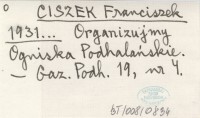 CISZEK Franciszek
1931... Organizujmy
Ogniska Podhalańskie.
— Gaz. Podh. 19, nr 4.
BT/008/0834